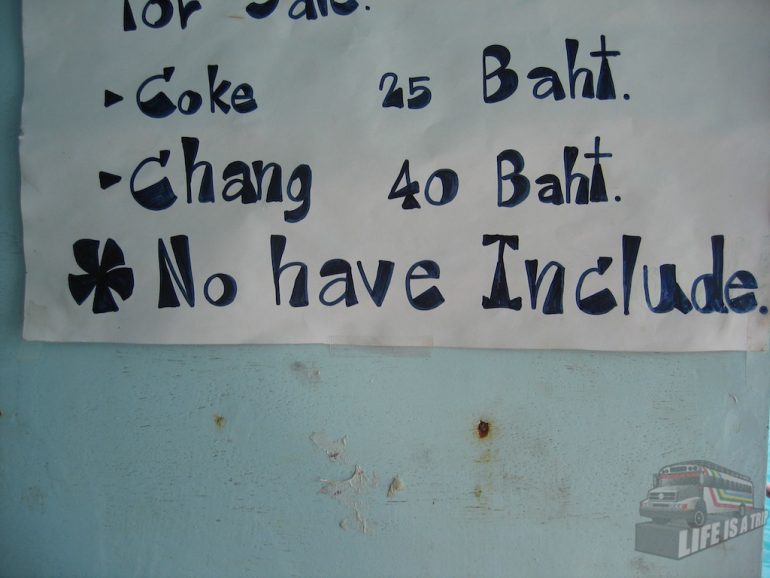 for Sale.
▸ Coke 25 Baht.
▸ Chang 40 Baht.
✤ No have Include.
LIFE IS A TRIP